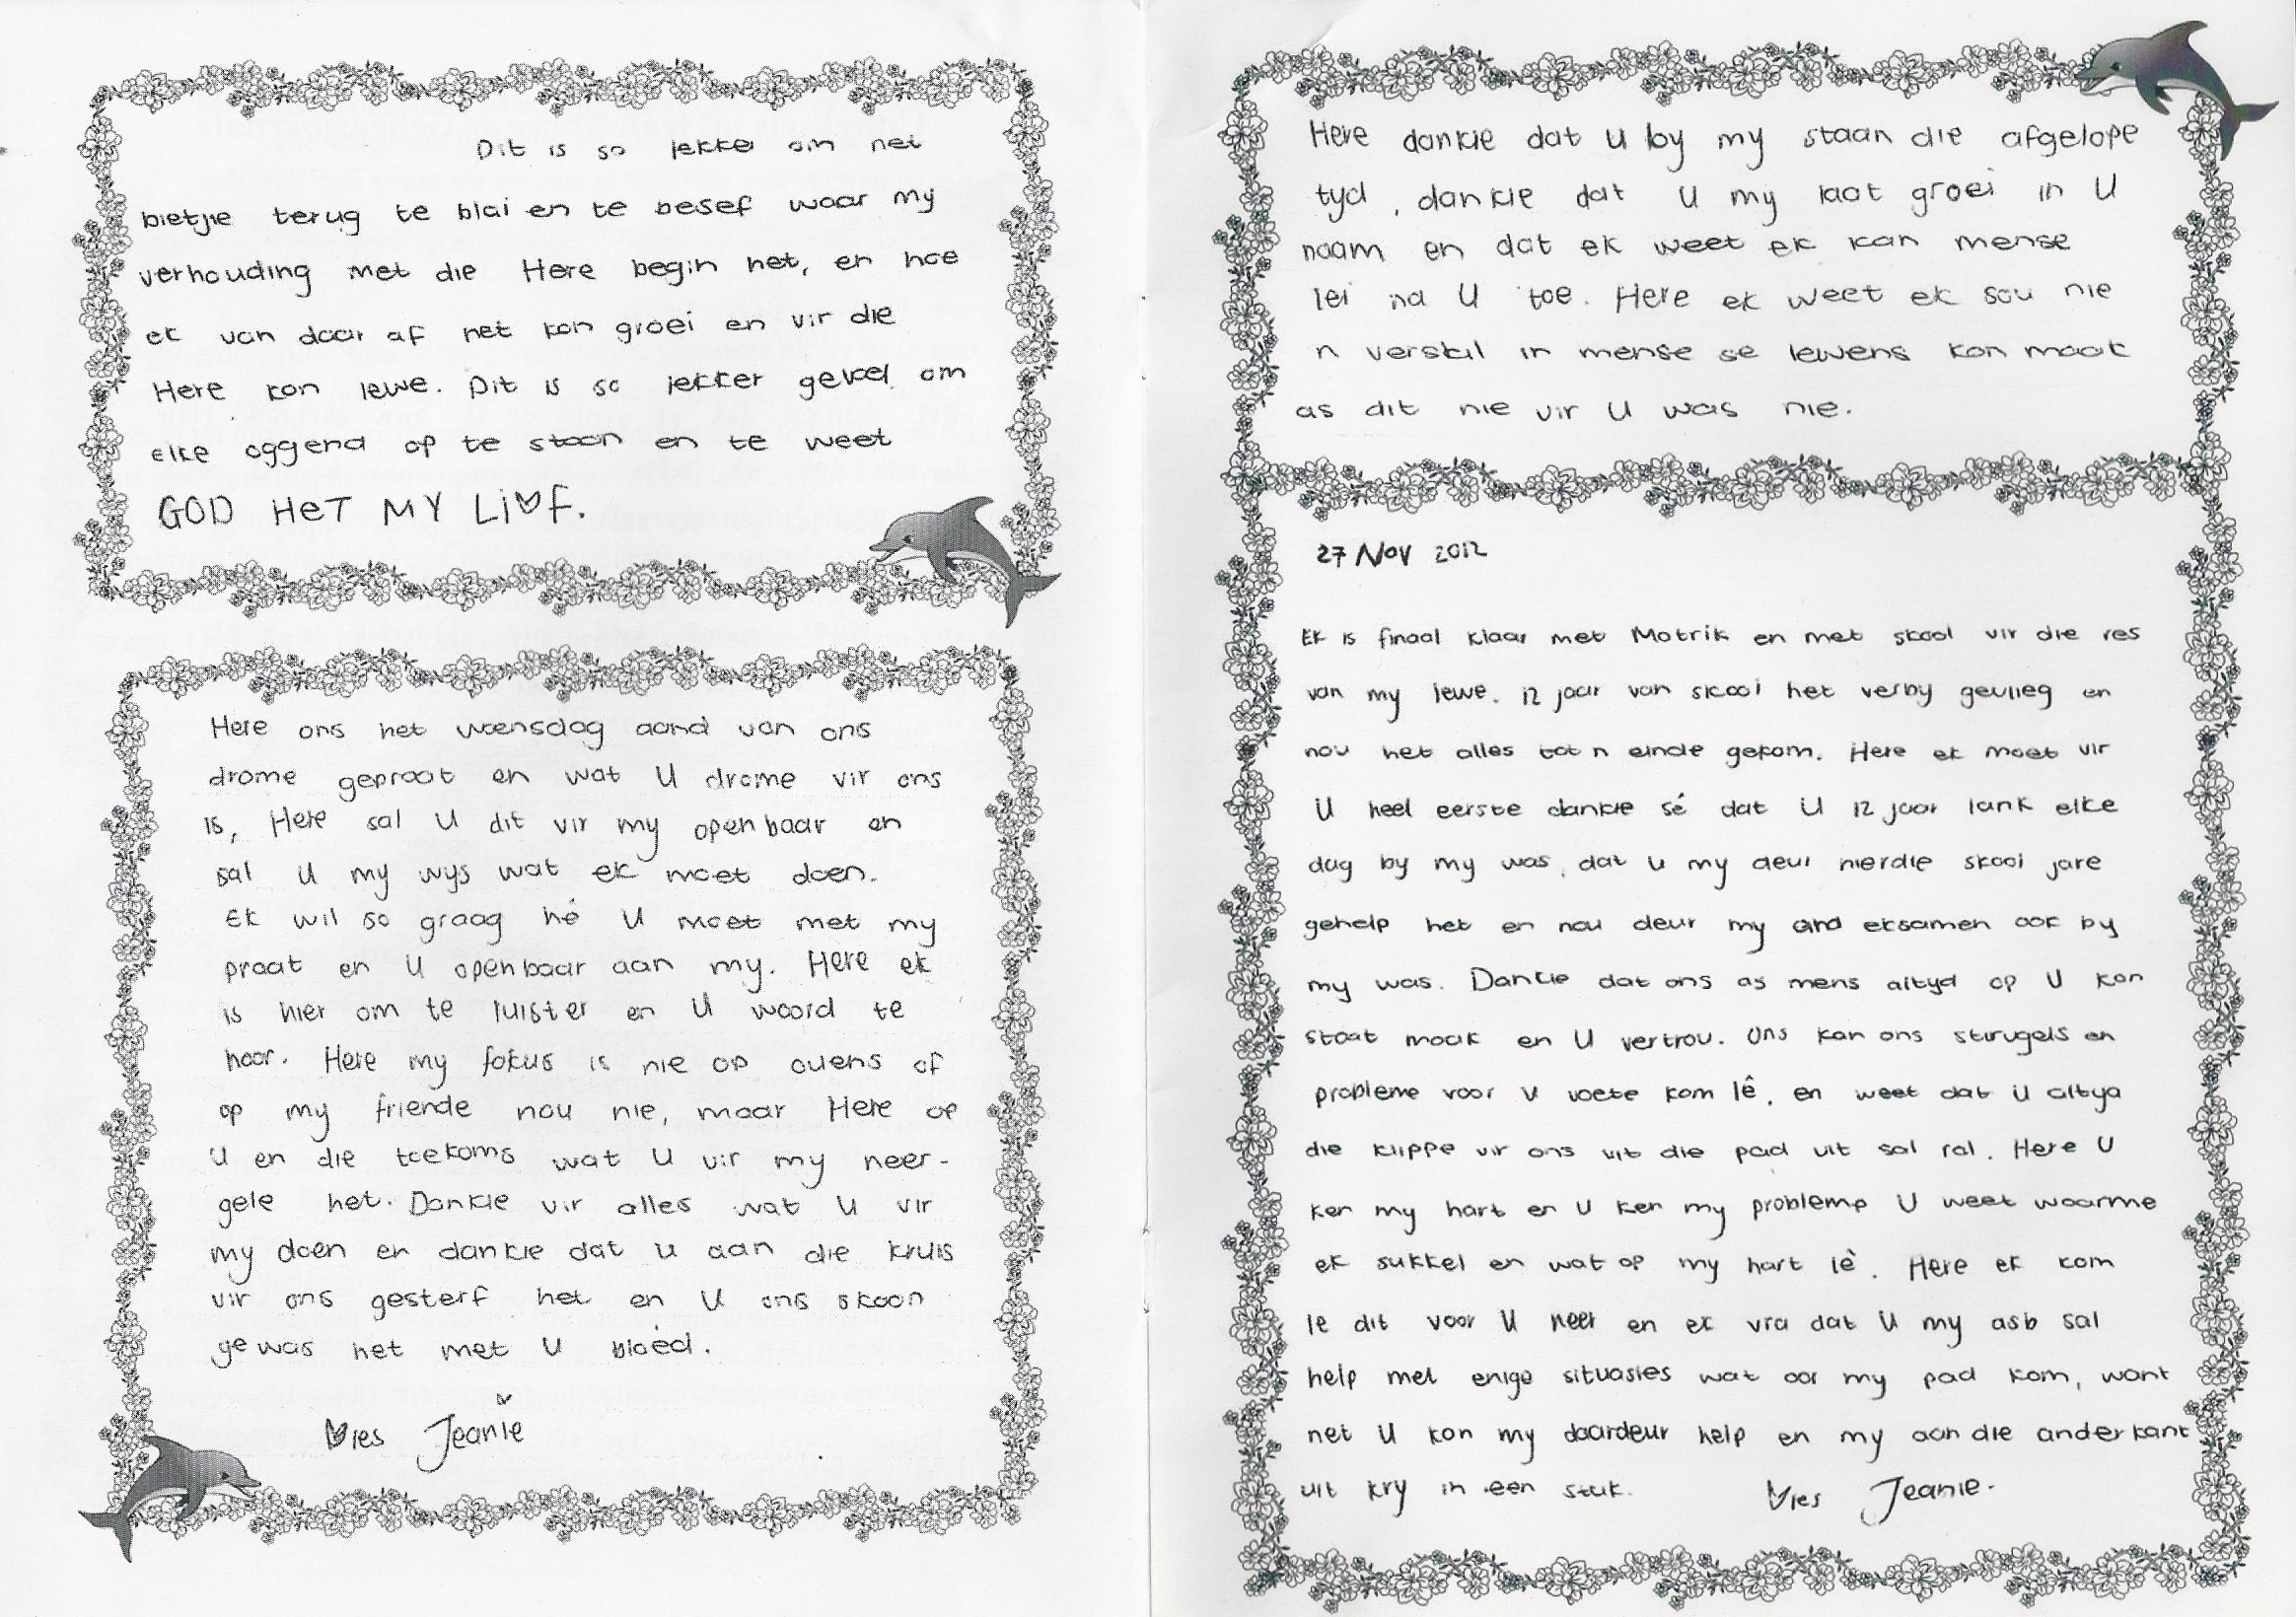 Dit is so lekker om net
bietjie terug te blai en te besef waar my
verhouding met die Here begin het, en hoe
ek van daar af net kon groei en vir die
Here kon lewe. Dit is so lekker gevoel om
elke oggend op te staan en te weet
GOD HeT MY Li♥f.
Here ons het woensdag aand van ons
drome gepraat en wat U drome vir ons
is, Here sal U dit vir my openbaar en
sal U my wys wat ek moet doen.
Ek wil so graag hé U moet met my
praat en U openbaar aan my. Here ek
is hier om te luister en U woord te
hoor. Here my fokus is nie op ouens of
op my friende nou nie, maar Here op
U en die toekoms wat U vir my neer-
gele het. Dankie vir alles wat U vir
my doen en dankie dat U aan die kruis
vir ons gesterf het en U ons skoon
gewas het met U bloed.
♥ies Jeanie
Here dankie dat U by my staan die afgelope
tyd, dankie dat U my laat groei in U
naam en dat ek weet ek kan mense
lei na U toe. Here ek weet ek sou nie
n verskil in mense se lewens kon maak
as dit nie vir U was nie.
27 Nov 2012
Ek is finaal klaar met Matrik en met skool vir die res
van my lewe. 12 jaar van skool het verby gevlieg en
nou het alles tot n einde gekom. Here ek moet vir
U heel eerste dankie sé dat U 12 jaar lank elke
dag by my was, dat U my deur hierdie skool jare
gehelp het en nou deur my eksamen ook by
my was. Dankie dat ons as mens altyd op U kan
staat maak en U vertrou. Ons kan ons strugels en
probleme voor U voete kom lê, en weet dat U altyd
die klippe vir ons uit die pad uit sal rol. Here U
ken my hart en U ken my probleme U weet waarme
ek sukkel en wat op my hart lè. Here ek kom
le dit voor U neer en ek vra dat U my asb sal
help met enige situasies wat oor my pad kom, want
net U kan my daardeur help en my aan die anderkant
uit kry in een stuk. ♥ies Jeanie.